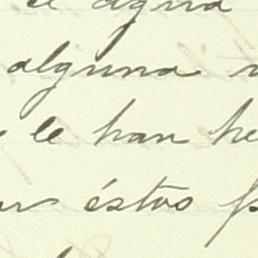 el agua
alguna
le han he
éstos